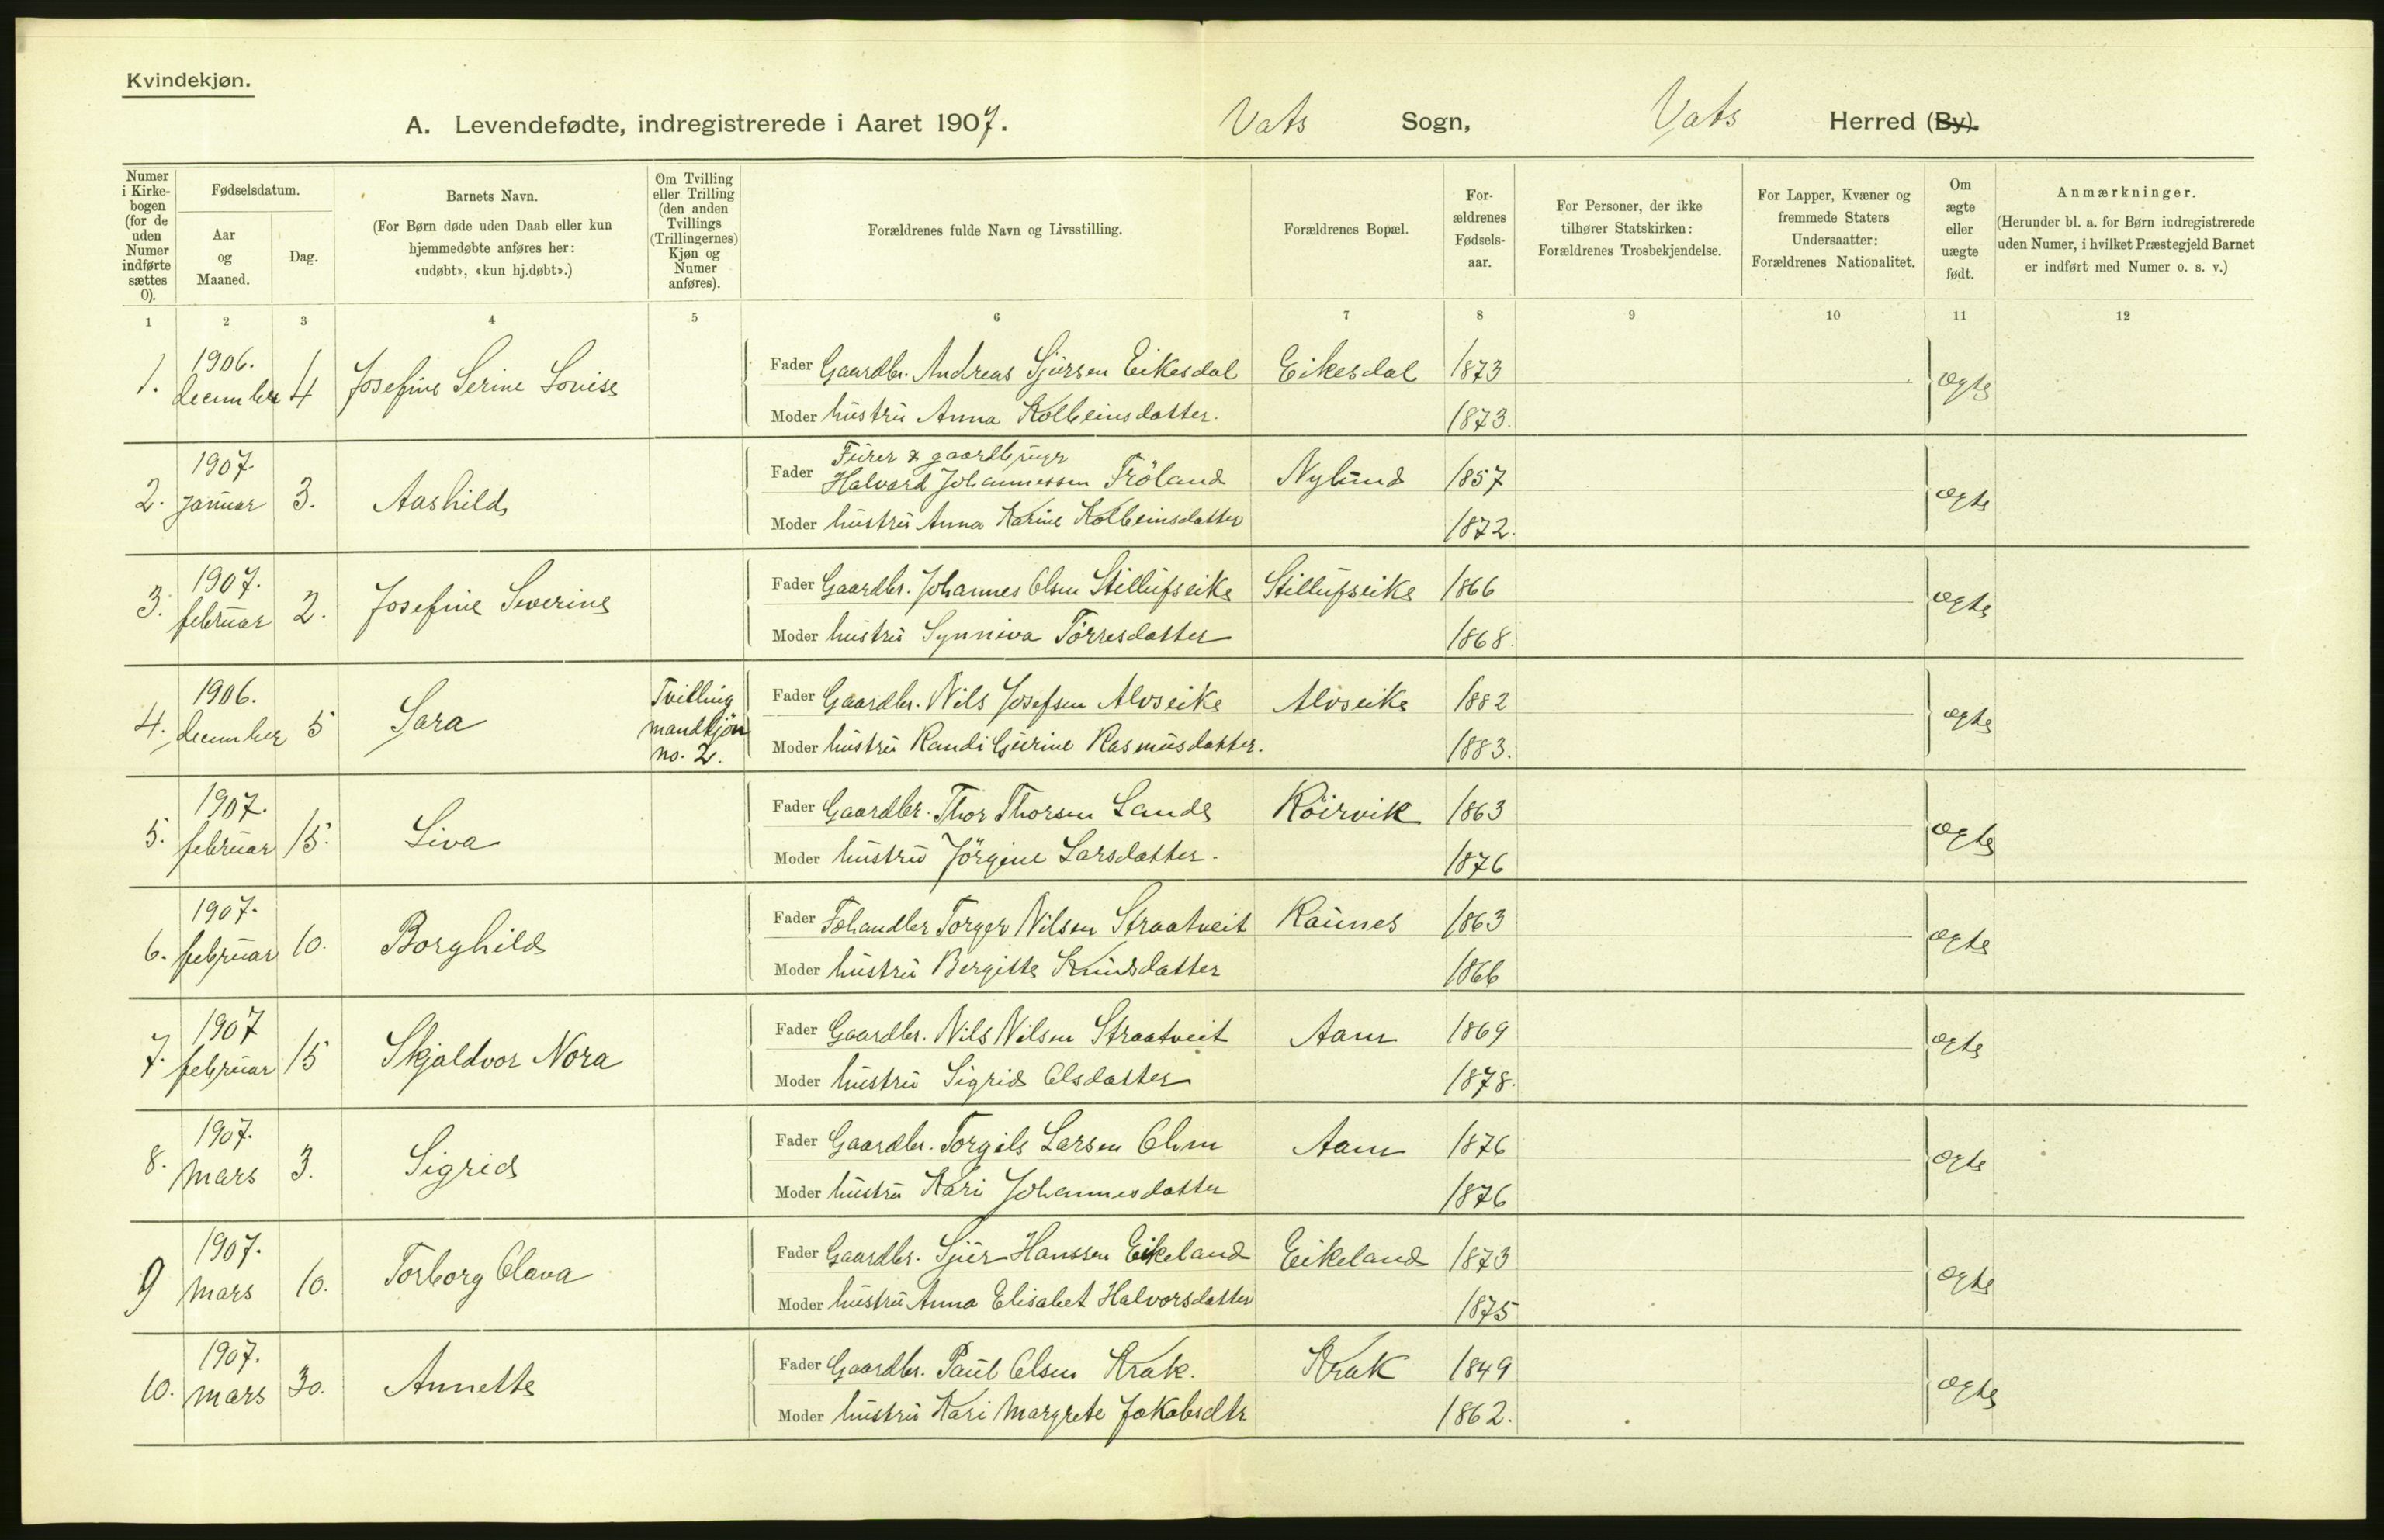 Kvindekjøn.
A. Levendefødte, indregistrerede i Aaret 1907. Vats Sogn, Vats Herred (By).
Numer i Kirkebogen (for de uden Numer indførte sættes 0).
Fødselsdatum.
Aar og Maaned.
Dag.
Barnets Navn.
(For Børn døde uden Daab eller kun hjemmedøbte anføres her: «udøbt», «kun hj.døbt».)
Om Tvilling eller Trilling (den anden Tvillings (Trillingernes) Kjøn og Numer anføres).
Forældrenes fulde Navn og Livsstilling.
Forældrenes Bopæl.
For-ældrenes Fødsels-aar.
For Personer, der ikke tilhører Statskirken: Forældrenes Trosbekjendelse.
For Lapper, Kvæner og fremmede Staters Undersaatter: Forældrenes Nationalitet.
Om ægte eller uægte født.
Anmærkninger.
(Herunder bl. a. for Børn indregistrerede uden Numer, i hvilket Præstegjeld Barnet er indført med Numer o. s. v.)
1 2 3 4 5 6 7 8 9 10 11 12
1. 1906. december 4 Josefine Serine Lovise
Fader Gaardbr. Andreas Sjursen Eikesdal Eikesdal 1873 ægte
Moder hustru Anna Kolbeinsdatter. 1873.
2. 1907. januar 3. Aashild
Fader Furer & gaardbruger Halvard Johannessen Fröland Nylund 1857 ægte
Moder hustru Anna Karine Kolbeinsdatter 1872.
3. 1907. februar 2. Josefine Severine
Fader Gaardbr. Johannes Olsen Stillufseike Stillufseike 1866 ægte
Moder hustru Synniva Torresdatter 1868.
4. 1906. december 5 Sara Tvilling mandkjön no. 2.
Fader Gaardbr. Nils Josefsen Alvseike Alvseike 1882 ægte
Moder hustru Randi Gurine Rasmusdatter. 1883.
5. 1907. februar 15. Siva
Fader Gaardbr. Thor Thorsen Lande Röirvik 1863 ægte
Moder hustru Jörgine Larsdatter. 1876
6. 1907. februar 10. Borghild
Fader Torger Nilsen Straatveit Raunes 1863 ægte
Moder hustru Bergitte Knudsdatter 1866
7. 1907 februar 15 Skjaldvor Nora
Fader Gaardbr. Nils Nilsen Straatveit Aam 1869 ægte
Moder hustru Sigrid Olsdatter 1878.
8. 1907. mars 3. Sigrid
Fader Gaardbr. Torgils Larsen Aam 1876 ægte
Moder hustru Kari Johannesdatter 1876
9 1907. mars 10. Torborg Olava
Fader Gaardbr. Sjur Hanssen Eikeland Eikeland 1873 ægte
Moder hustru Anna Elisabet Halvorsdatter 1875
10. 1907. mars 30. Annette
Fader Gaardbr. Paul Olsen Krak. Krak 1849 ægte
Moder hustru Kari Margrete Jakobsdtr 1862.